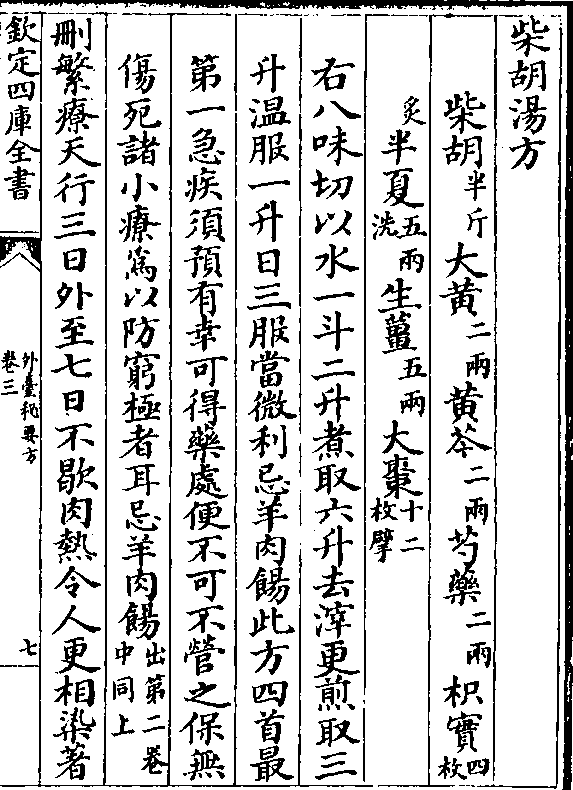 柴胡湯方
柴胡半斤大黄二兩黄芩二兩芍藥二兩枳實四枚
炙半夏五兩洗生薑五兩大棗十二枚擘
右八味切以水一斗二升煮取六升去滓更煎取三
升温服一升日三服當微利忌羊肉餳此方四首最
第一急疾須預有幸可得藥處便不可不營之保無
傷死諸小療為以防窮極者耳忌羊肉餳出第二卷中同上
刪繁療天行三日外至七日不歇肉熱令人更相染著
欽定四庫全書
外臺秘要方
卷三
七